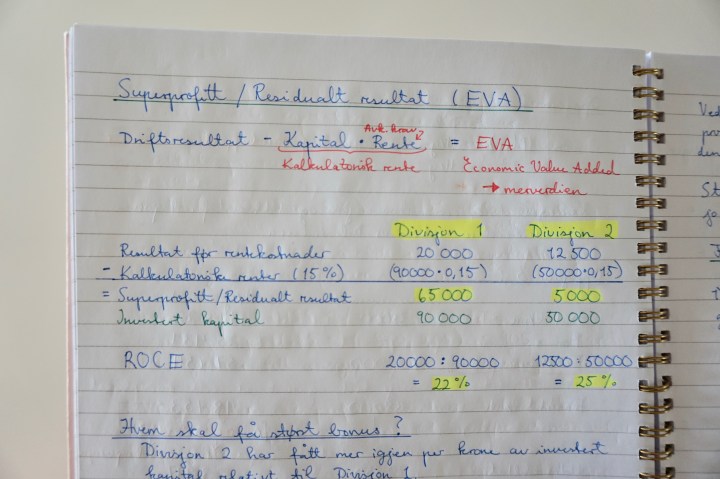 Superprofitt / Residualt resultat (EVA)
Avk.krav
Driftsresultat - Kapital · Rente = EVA
Kalkulatorisk rente Economic Value Added
→ merverdien
Divisjon 1 Divisjon 2
Resultat før rentekostnader 20 000 12 500
- Kalkulatoriske renter (15%) (90000·0,15) (50000·0,15)
= Superprofitt/Residualt resultat 65000 5000
Invertert kapital 90 000 50 000
ROCE 20000 : 90000 12500 : 50000
= 22% = 25%
Hvem skal få størst bonus?
Divisjon 2 har fått mer igjen per krone av invertert
kapital relativt til Divisjon 1.
Ved